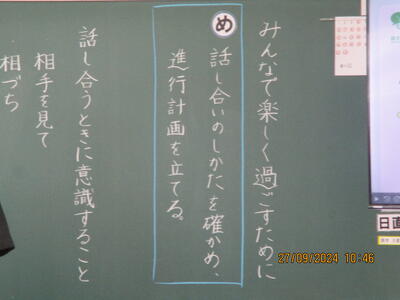 みんなで楽しく過ごすために
め
話し合いのしかたを確かめ、
進行計画を立てる。
話し合うときに意識すること
相手を見て
相づち
日直
27/09/2024 10:46